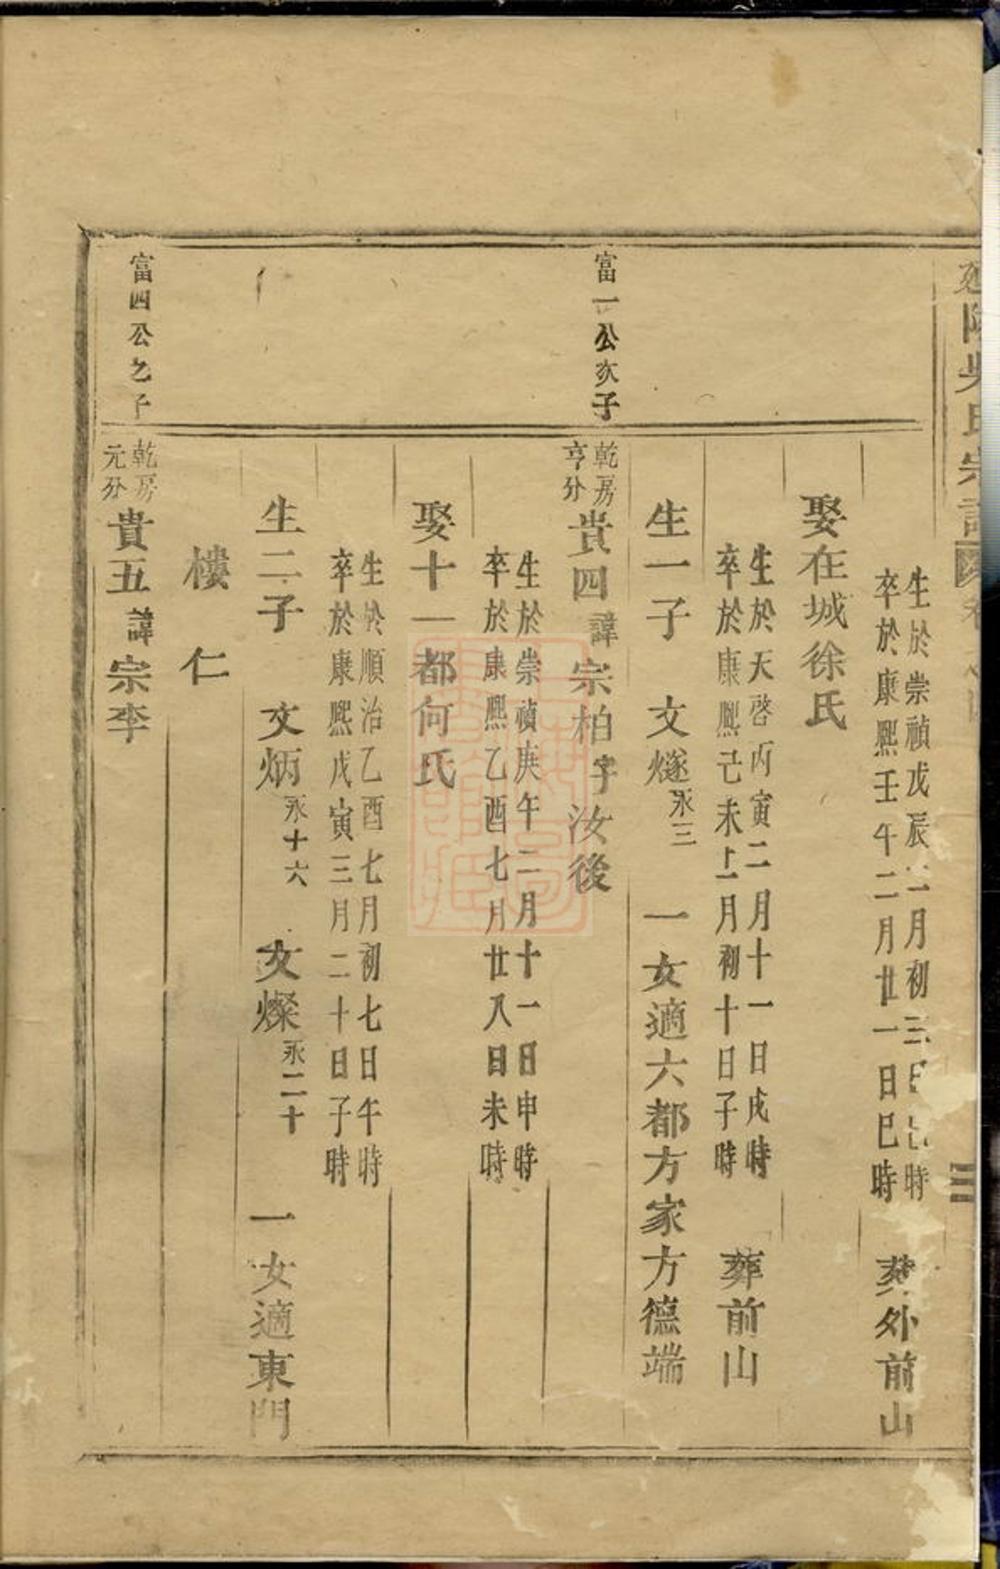 陵吳氏宗譜
生於崇禎戊辰二月初三日時
卒於康熙壬午二月廿一日巳時
葬外前山
娶在城徐氏
生於天啓丙寅二月十一日戌時
卒於康熙己未上月初十日子時
葬前山
生一子 文燧永三 一女適六都方家方德端
富一公次子
乾房
亨分
貴四諱宗柏字汝後
生於崇禎庚午二月十一日申時
卒於康熙乙酉七月廿八日未時
娶十一都何氏
生於順治乙酉七月初七日午時
卒於康熙戊寅三月二十日子時
生二子 文炳永十六 文燦永二十 一女適東門
樓仁
富四公之子
乾房
元分
貴五諱宗李